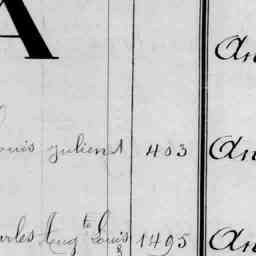 A
An
ouis julien 1 403 An
arles Aug te Louis & 1495 An